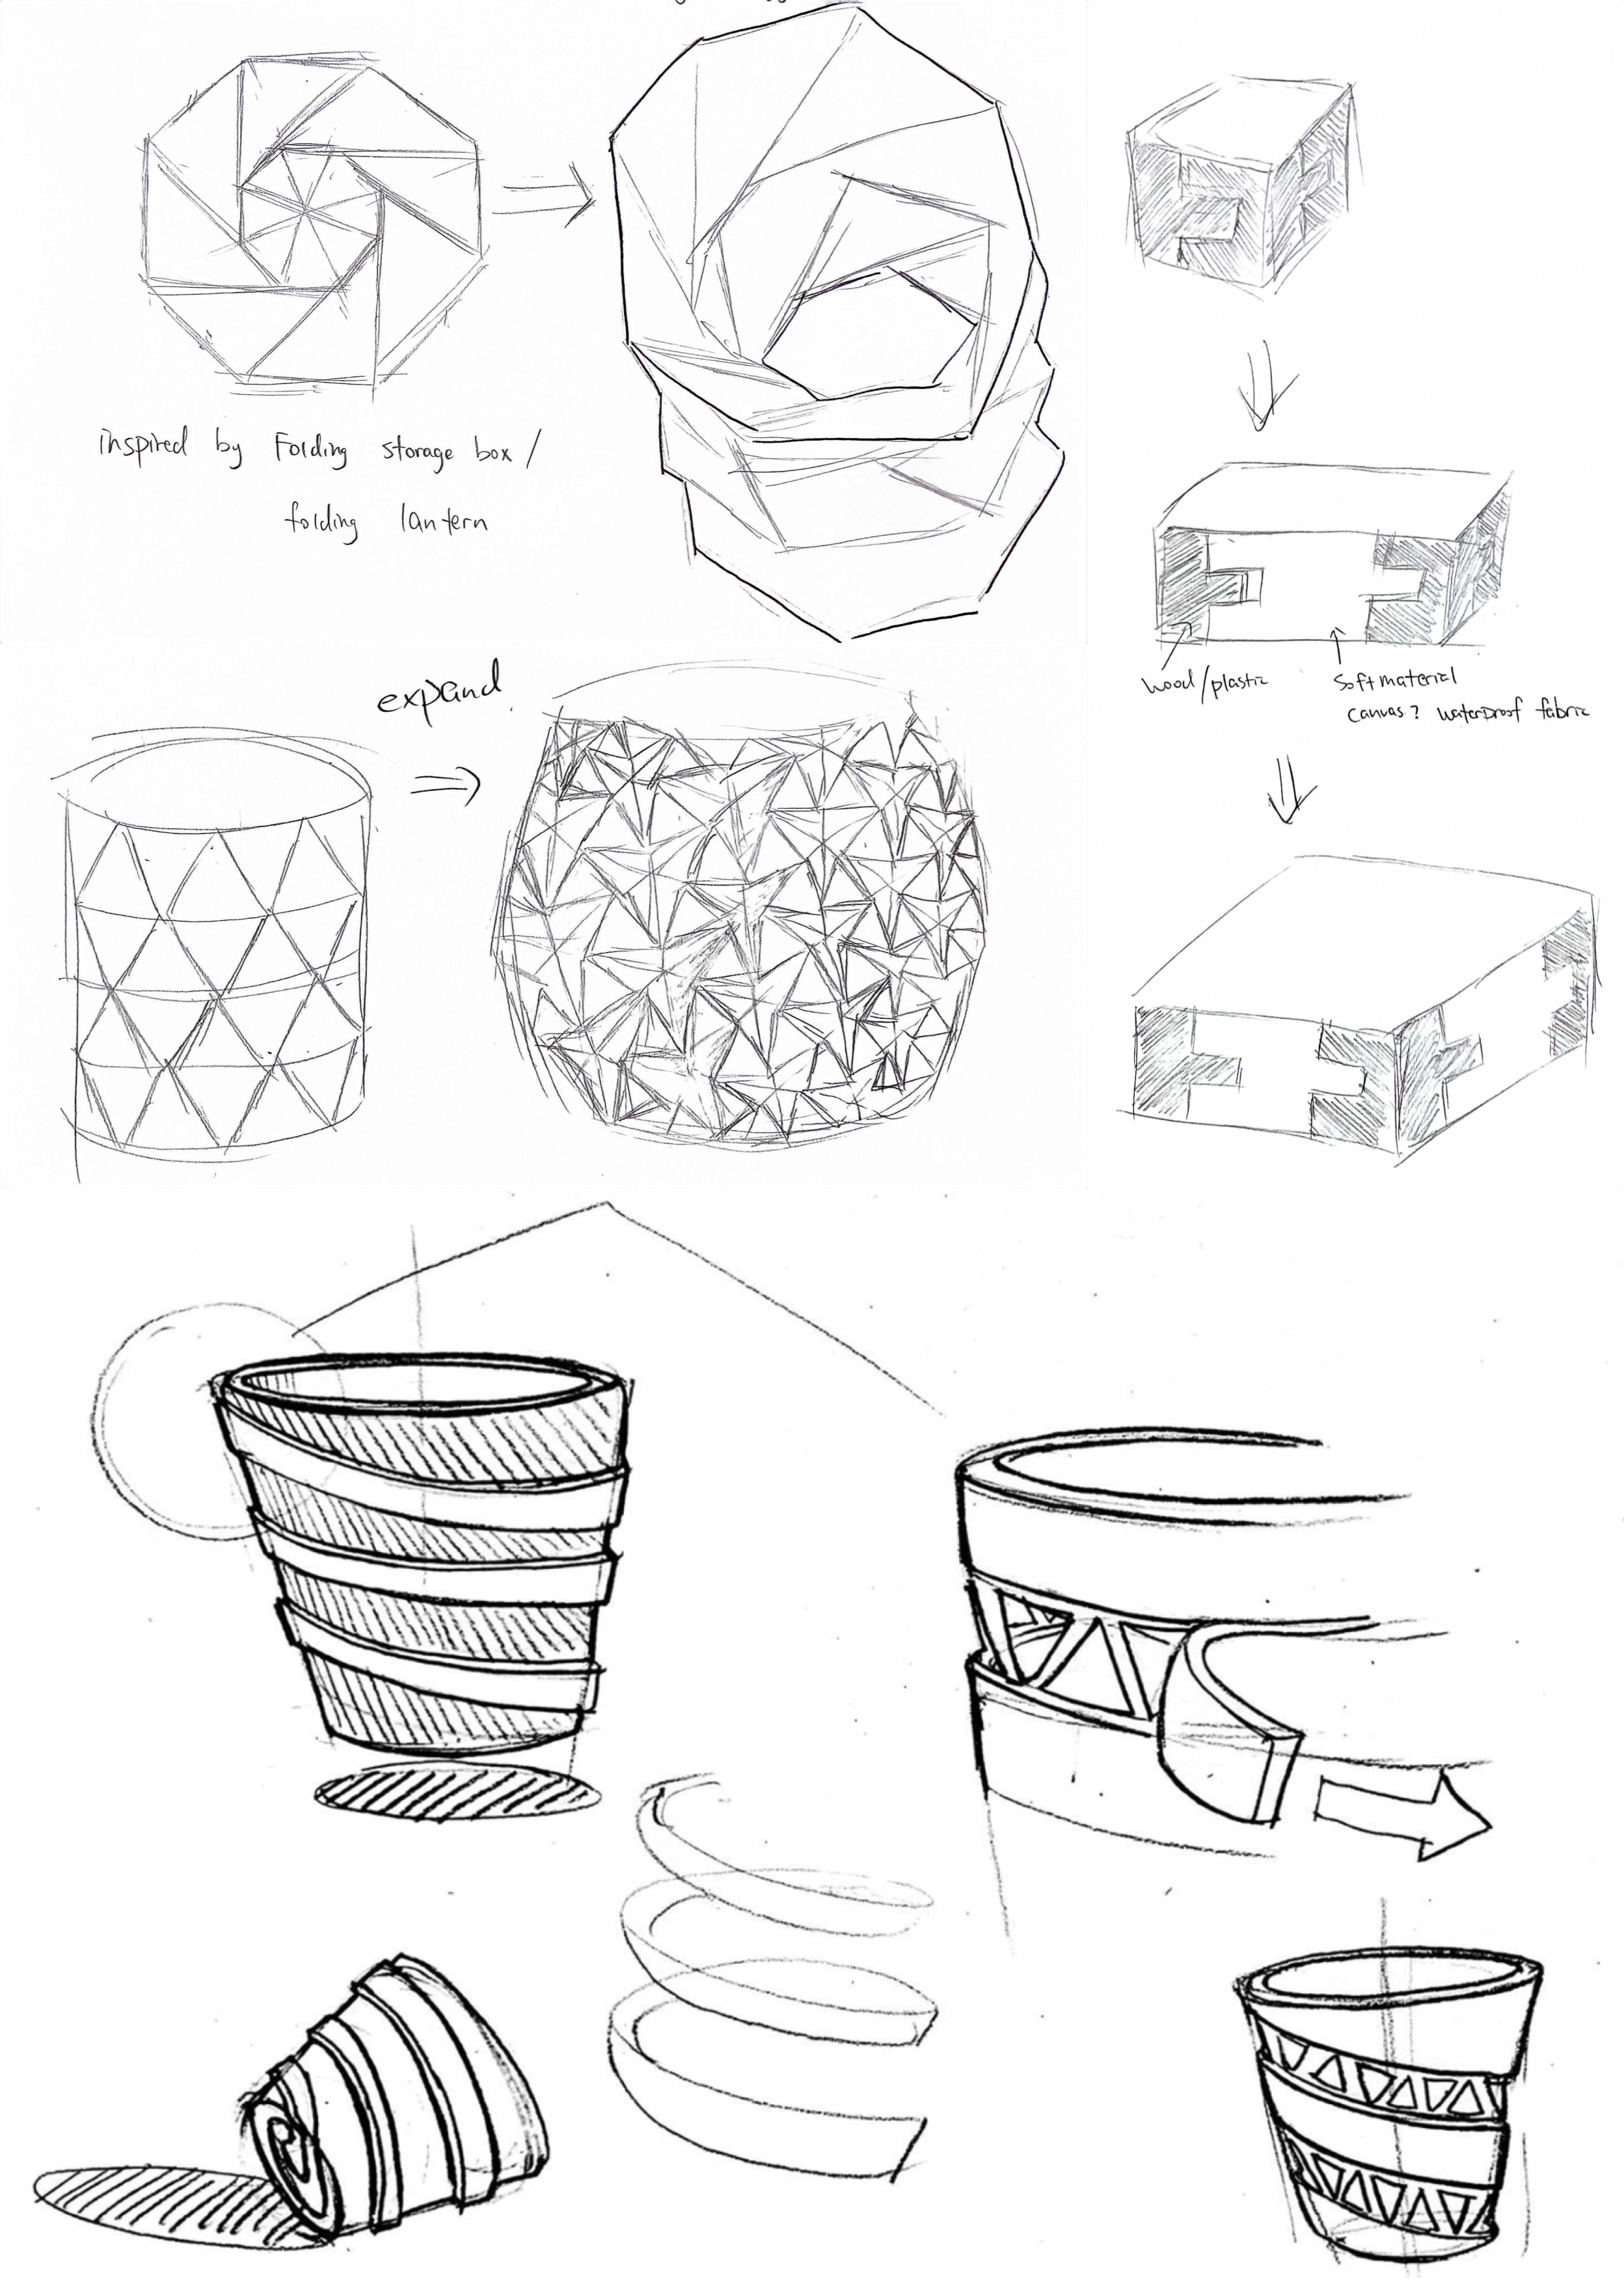 inspired by Folding storage box /
folding lantern
expand
wood/plastic
Soft material
canvas? waterproof fabric